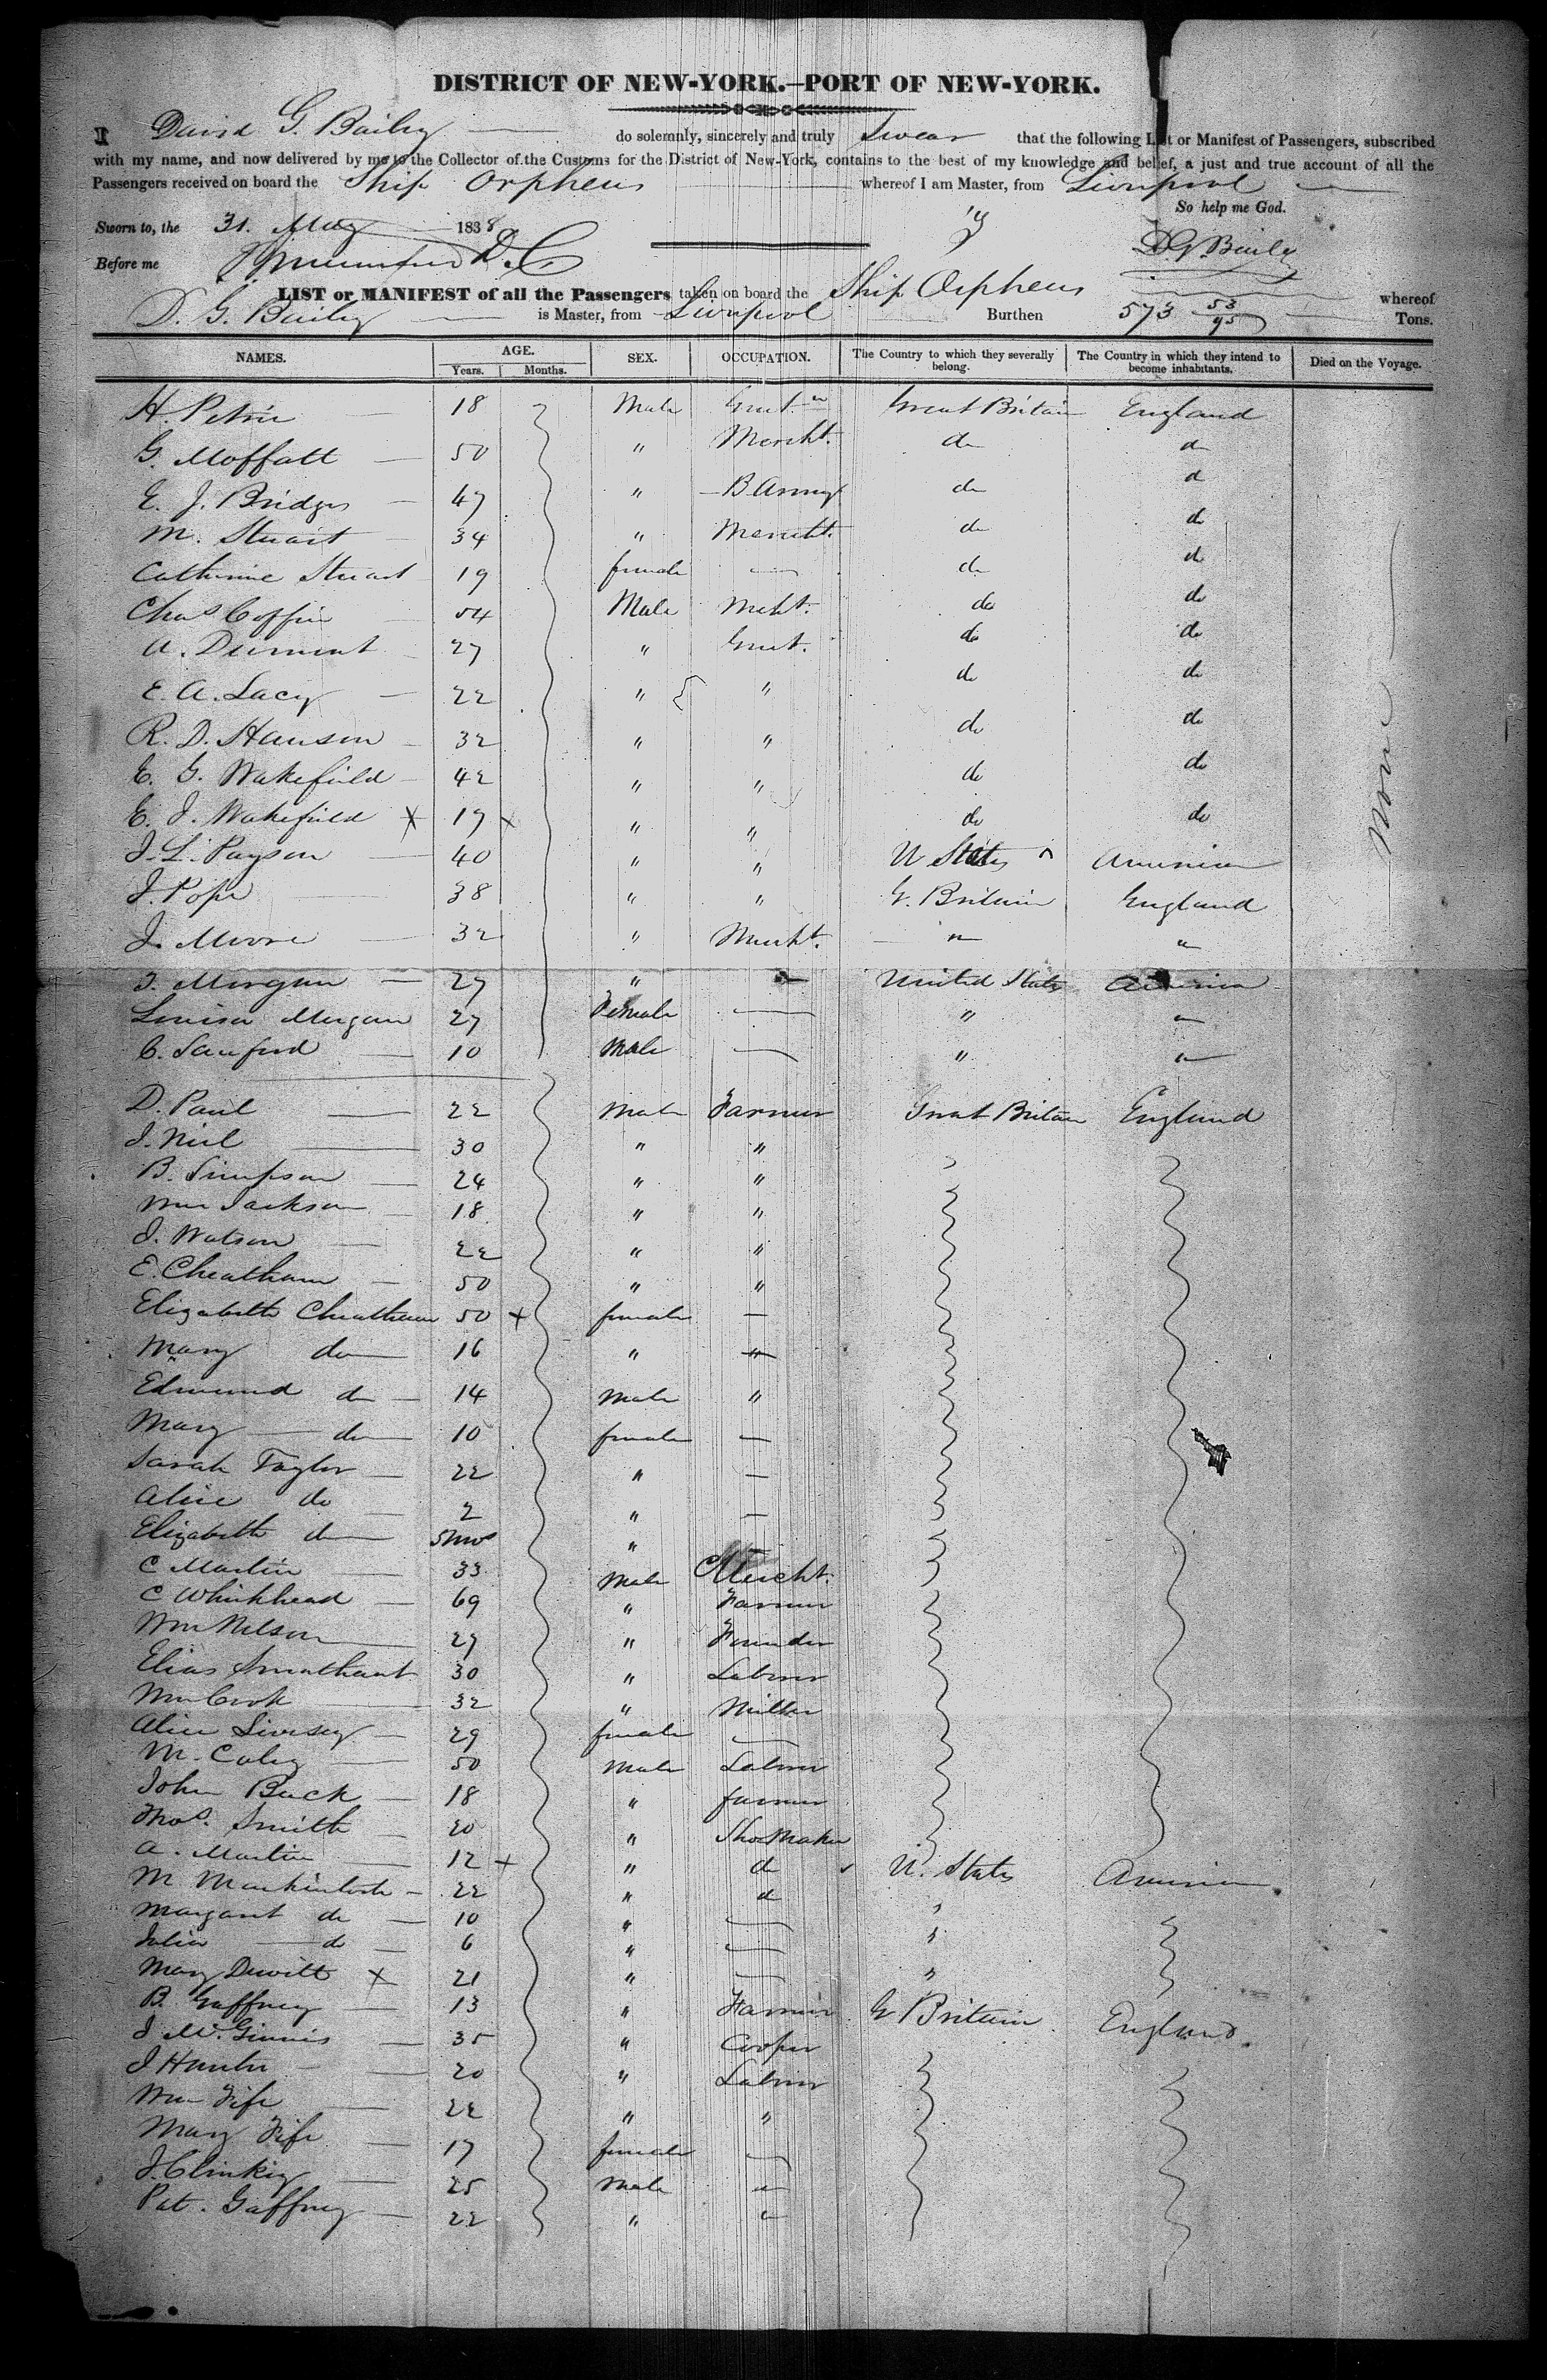 DISTRICT OF NEW-YORK.—PORT OF NEW-YORK.
I David G. Bailey do solemnly, sincerely and truly Swear that the following List or Manifest of Passengers, subscribed
with my name, and now delivered by me to the Collector of the Customs for the District of New-York, contains to the best of my knowledge and belief, a just and true account of all the
Passengers received on board the Ship Orpheus whereof I am Master, from Liverpool
So help me God.
Sworn to, the 31. May 1838
D. G. Bailey
Before me D.C
LIST or MANIFEST of all the Passengers taken on board the Ship Orpheus whereof
D. G. Bailey is Master, from Liverpool Burthen 573 53/95 Tons.
NAMES. AGE. SEX. OCCUPATION. The Country to which they severally belong. The Country in which they intend to become inhabitants. Died on the Voyage.
Years. Months.
H. Petrie 18 Male Gent.n Great Britain England
G. Moffatt — 50 " Mercht. do do
E. J. Bridges — 47 " B Army do do
M. Stuart — 34 " Mercht. do do
Catherine Stuart 19 female — do do
Chas Coffin 54 Male Mcht. do do
A. Dumont 27 " Gent. do do
E. A. Lacy — 22 " " do do
R. D. Hanson — 32 " " do do
E. G. Wakefield — 42 " " do do
E. J. Wakefield X 17 x " " do do
J. L. Payson — 40 " " U States America
J. Pope — 38 " " G. Britain England
J. Moore — 32 " Mercht. " "
J. Morgan — 27 " United States America
Louisa Morgan 27 Female — " "
C. Sanford — 10 Male — " "
None
D. Paul — 22 Male Farmer Great Britain England
J. Neil — 30 " "
B. Simpson — 24 " "
Wm Jackson — 18 " "
J. Watson — 22 " "
E. Cheatham — 50 " "
Elizabeth Cheatham 50 + female —
Mary do — 16 " "
Edmund do — 14 Male "
Mary — do — 10 female —
Sarah Taylor — 22 " —
Alice do — 2 " —
Elizabeth do — 5mos "
C Martin — 33 Male Mercht.
C Whinkhead — 69 " Farmer
Wm Nelson — 27 " Founder
Elias 30 " Labour
Wm Cook — 32 " Miller
Alice Livesey — 29 female —
M. Coley — 50 Male Labour
John Buck — 18 " farmer
Thos. Smith — 20 " Shoe Maker
A. Martin — 12 + " do U. States America
M Mackintosh — 22 " do "
Margaret do — 10 " — "
Julia — do — 6 " — "
Mary Dewitt X 21 " — "
B. Gaffney — 13 " Farmer G Britain England
J McGinnis — 35 " Cooper
J Hunter — 20 " Labour
Wm Fife — 22 " "
Mary Fife — 17 female —
J. Clinkey — 25 Male "
Pat. Gaffney — 22 " "